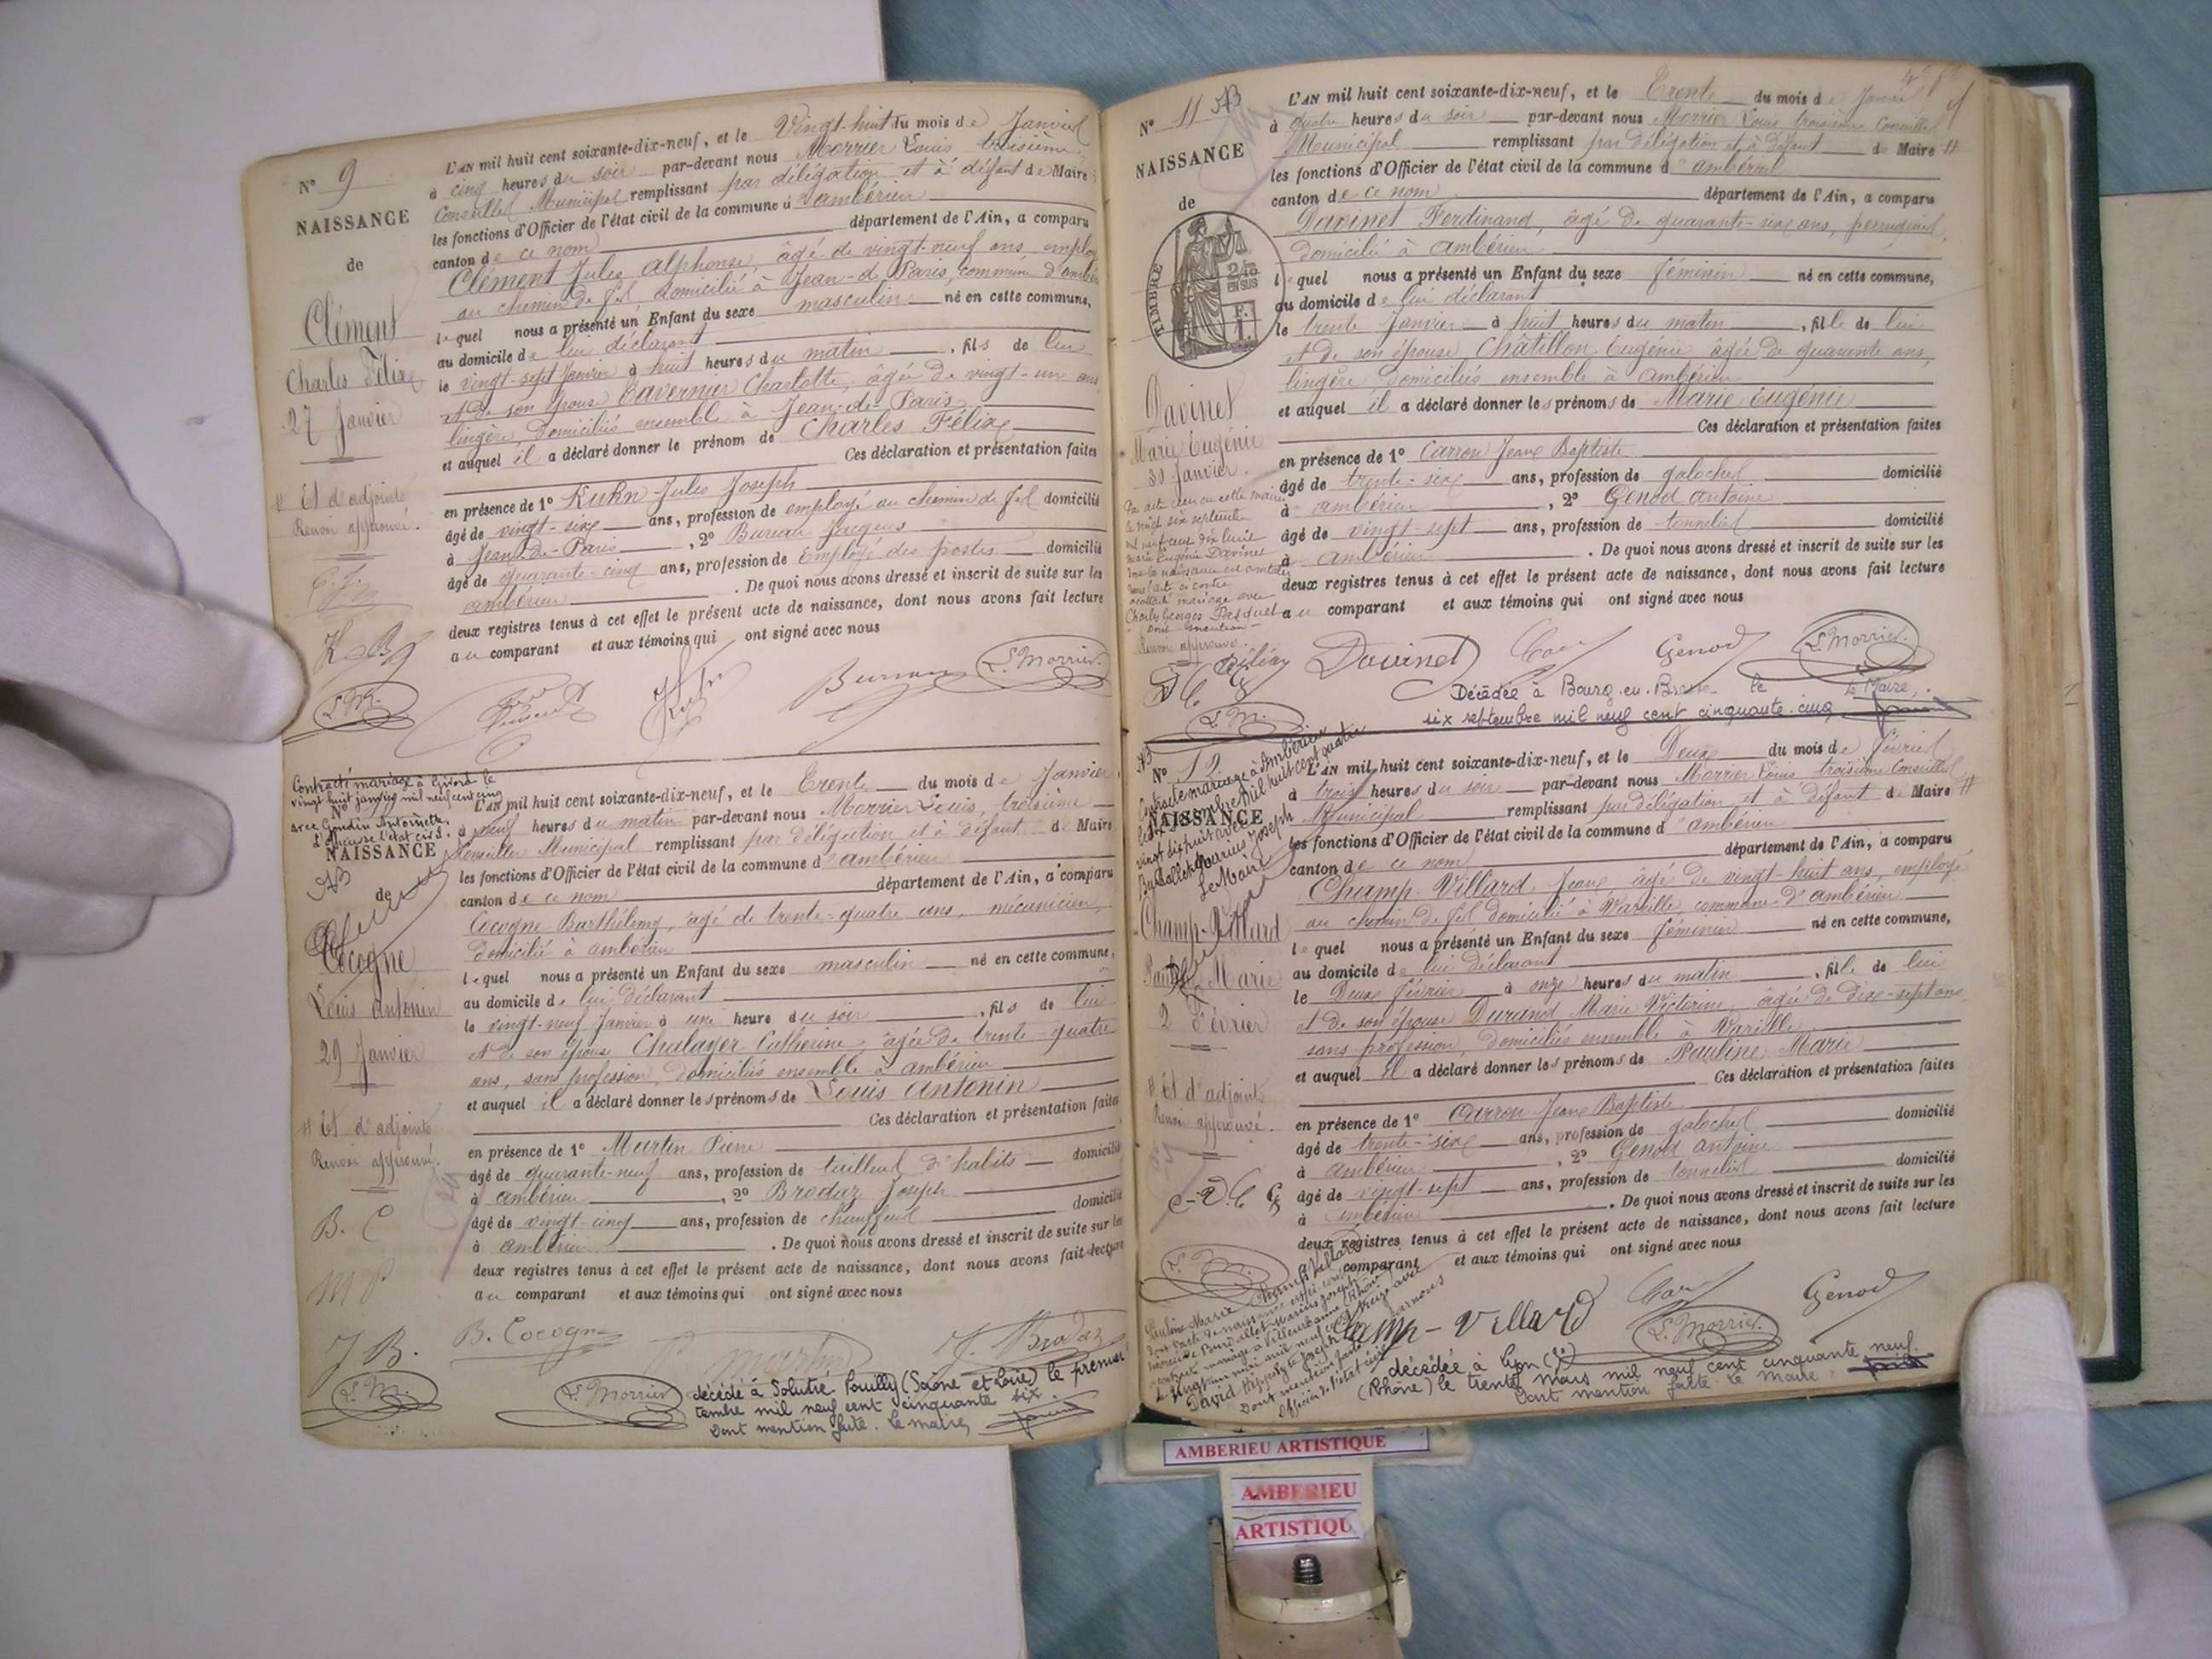 N° 9
NAISSANCE
de
Clément
Charles Félix
27 Janvier
# Et d'adjoint
Renvoi approuvé.
L'AN mil huit cent soixante-dix-neuf, et le Vingt-huit du mois de Janvier
à cinq heures du soir par-devant nous Morrier Louis troisième
Conseiller Municipal remplissant par délégation et à défaut de Maire
les fonctions d'Officier de l'état civil de la commune d'ambérieu
canton de ce nom département de l'Ain, a comparu
Clément Jules Alphonse, âgé de vingt-neuf ans, employé
au chemin de fer, domicilié à Jean-de-Paris, commune d'ambérieu
lequel nous a présenté un Enfant du sexe masculin né en cette commune,
au domicile de lui déclarant
le vingt-sept Janvier à huit heures du matin, fils de lui
et de son épouse Tavernier Charlotte, âgée de vingt-un ans
lingère, domiciliés ensembl à Jean-de-Paris
et auquel il a déclaré donner le prénom de Charles Félix
Ces déclaration et présentation faites
en présence de 1° Kuhn Jules Joseph
âgé de vingt-six ans, profession de employé au chemin de fer domicilié
à Jean-de-Paris, 2° Bureau Jacques
âgé de quarante-cinq ans, profession de Employé des postes domicilié
ambérieu. De quoi nous avons dressé et inscrit de suite sur les
deux registres tenus à cet effet le présent acte de naissance, dont nous avons fait lecture
au comparant et aux témoins qui ont signé avec nous
K B
L. M.
Kuhn
Bureau
L. Morrier
Contracté mariage à Givors le
vingt huit janvier mil neuf cent cinq
avec Gondin Antoinette.
L'officier de l'état civil.
N°
NAISSANCE
de
Cocogne
Louis Antonin
29 Janvier
# Et d'adjoint
Renvoi approuvé.
B. C
M P
J B.
L. M.
L'AN mil huit cent soixante-dix-neuf, et le Trente du mois de Janvier
à neuf heures du matin par-devant nous Morrier Louis, troisième
Conseiller Municipal remplissant par délégation et à défaut de Maire
les fonctions d'Officier de l'état civil de la commune d'ambérieu
canton de ce nom département de l'Ain, a comparu
Cocogne Barthélemy, âgé de trente-quatre ans, mécanicien,
domicilié à ambérieu
lequel nous a présenté un Enfant du sexe masculin né en cette commune,
au domicile de lui déclarant
le vingt-neuf Janvier à une heure du soir, fils de lui
et de son épouse Chalayer Catherine âgée de trente-quatre
ans, sans profession, domiciliés ensemble à ambérieu
et auquel il a déclaré donner les prénoms de Louis Antonin
Ces déclaration et présentation faites
en présence de 1° Martin Pierre
âgé de quarante-neuf ans, profession de tailleur d'habits domicilié
à ambérieu, 2° Brodaz Joseph
âgé de vingt-cinq ans, profession de chauffeur domicilié
à ambérieu. De quoi nous avons dressé et inscrit de suite sur les
deux registres tenus à cet effet le présent acte de naissance, dont nous avons fait lecture
au comparant et aux témoins qui ont signé avec nous
B. Cocogne
P. Martin
J. Brodaz
L. Morrier
décédé à Solutré Pouilly (Saône et Loire) le premier
tembre mil neuf cent cinquante six.
Dont mention faite. Le maire,
N° 11
NAISSANCE
de
TIMBRE
2/10
EN SUS
1 F.
Davinet
Marie Eugénie
30 Janvier.
Par acte reçu en cette mairie
le vingt six septembre
mil neuf cent dix huit
Marie Eugénie Davinet
dont la naissance est constatée
dans l'acte ci contre
a contracté mariage avec
Charles Georges Pasquet
Dont mention
Renvoi approuvé.
L. M.
L'AN mil huit cent soixante-dix-neuf, et le Trente du mois de Janvier
à quatre heures du soir par-devant nous Morrier Louis troisième Conseiller
Municipal remplissant par délégation et à défaut de Maire #
les fonctions d'Officier de l'état civil de la commune d'ambérieu
canton de ce nom département de l'Ain, a comparu
Davinet Ferdinand, âgé de quarante-six ans, perruquier,
domicilié à ambérieu
lequel nous a présenté un Enfant du sexe féminin né en cette commune,
au domicile de lui déclarant
le trente Janvier à huit heures du matin, fille de lui
et de son épouse Châtillon Eugénie âgée de quarante ans,
lingère domiciliés ensemble à ambérieu
et auquel il a déclaré donner les prénoms de Marie Eugénie
Ces déclaration et présentation faites
en présence de 1° Carron Jean Baptiste
âgé de trente-six ans, profession de galocher domicilié
à ambérieu, 2° Genod Antoine
âgé de vingt-sept ans, profession de tonnelier domicilié
à ambérieu. De quoi nous avons dressé et inscrit de suite sur les
deux registres tenus à cet effet le présent acte de naissance, dont nous avons fait lecture
au comparant et aux témoins qui ont signé avec nous
Davinet
Genod
L. Morrier
Décédée à Bourg-en-Bresse le
six septembre mil neuf cent cinquante-cinq
Le Maire,
N° 12
NAISSANCE
Contracté mariage à Ambérieu
mil huit cent quatre
vingt dix huit avec
Marius Joseph
Le Maire
Champ-Villard
Pauline Marie
2 Février
# Et d'adjoint
Renvoi approuvé.
L. M.
L'AN mil huit cent soixante-dix-neuf, et le Deux du mois de février
à trois heures du soir par-devant nous Morrier Louis troisième Conseiller
Municipal remplissant par délégation et à défaut de Maire #
les fonctions d'Officier de l'état civil de la commune d'ambérieu
canton de ce nom département de l'Ain, a comparu
Champ-Villard Jean, âgé de vingt-huit ans, employé
au chemin de fer domicilié à Vareille commune d'ambérieu
lequel nous a présenté un Enfant du sexe féminin né en cette commune,
au domicile de lui déclarant
le Deux février à onze heures du matin, fille de lui
et de son épouse Durand Marie Victorine âgée de dix-sept ans
sans profession, domiciliés ensemble à Vareille
et auquel il a déclaré donner les prénoms de Pauline Marie
Ces déclaration et présentation faites
en présence de 1° Carron Jean Baptiste
âgé de trente-six ans, profession de galocher domicilié
à ambérieu, 2° Genod Antoine
âgé de vingt-sept ans, profession de tonnelier domicilié
à ambérieu. De quoi nous avons dressé et inscrit de suite sur les
deux registres tenus à cet effet le présent acte de naissance, dont nous avons fait lecture
au comparant et aux témoins qui ont signé avec nous
Champ-Villard
Genod
L. Morrier
décédée à Lyon
(Rhône) le trente mars mil neuf cent cinquante neuf.
Dont mention faite Le maire,
AMBERIEU ARTISTIQUE
AMBERIEU
ARTISTIQU